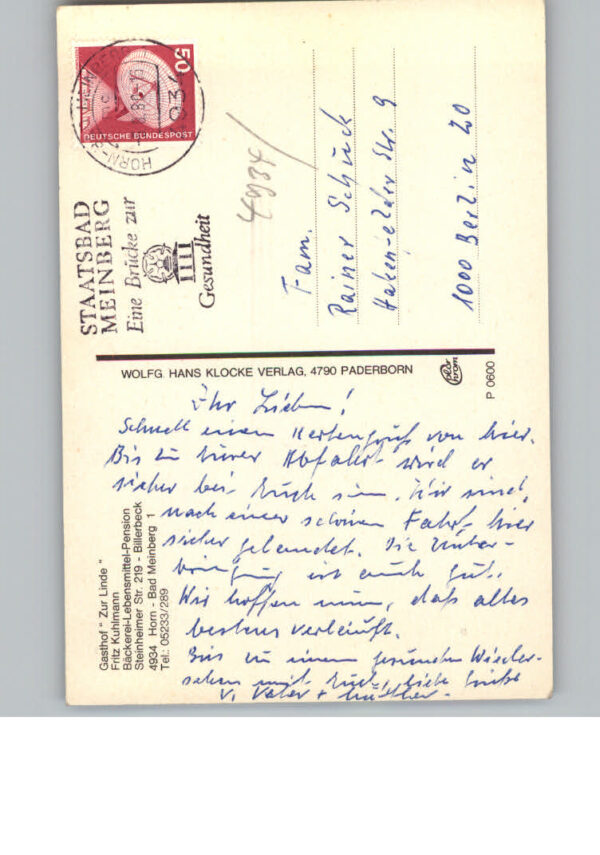 50
DEUTSCHE BUNDESPOST
HORN-
STAATSBAD
MEINBERG
Eine Brücke zur
Gesundheit
4934
Fam.
Rainer Schuck
Str. 9
1000 Berlin 20
WOLFG. HANS KLOCKE VERLAG, 4790 PADERBORN
P 0600
Gasthof " Zur Linde "
Fritz Kuhlmann
Bäckerei-Lebensmittel-Pension
Steinheimer Str. 219 - Billerbeck
4934 Horn - Bad Meinberg 1
Tel.: 05233/289
Ihr Lieben!
Schnell einen Kartengruß von hier.
Bis zu Eurer Abfahrt wird er
sicher bei Euch sein. Wir sind
nach einer schönen Fahrt hier
sicher gelandet. Die Unter-
bringung ist auch gut.
Wir hoffen nun, daß alles
bestens verläuft.
Bis zu einem gesunden Wieder-
sehen mit Euch, liebe Grüße
v. Vater + Mutter.